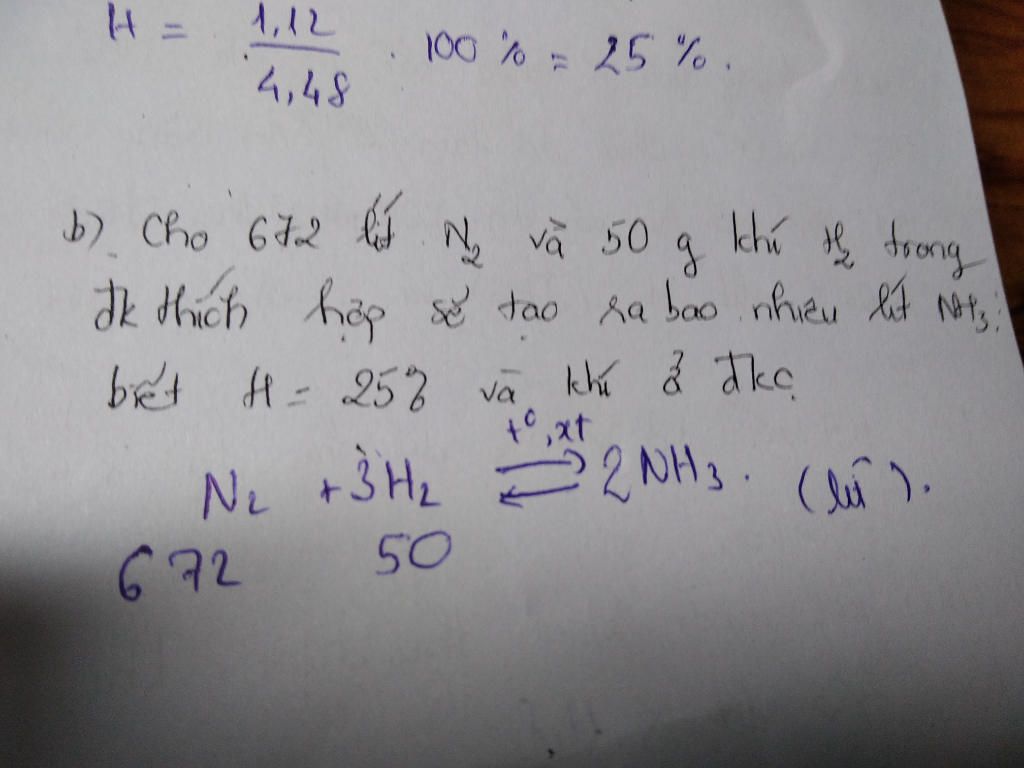 H = 1,12 / 4,48 . 100 % = 25 %.
b) Cho 672 lít N2 và 50 g khí H2 trong
đk thích hợp sẽ tạo ra bao nhiêu lít NH3;
biết H = 25% và khí ở đkc
t°, xt
N2 + 3H2 ⇌ 2NH3. (lít).
672 50